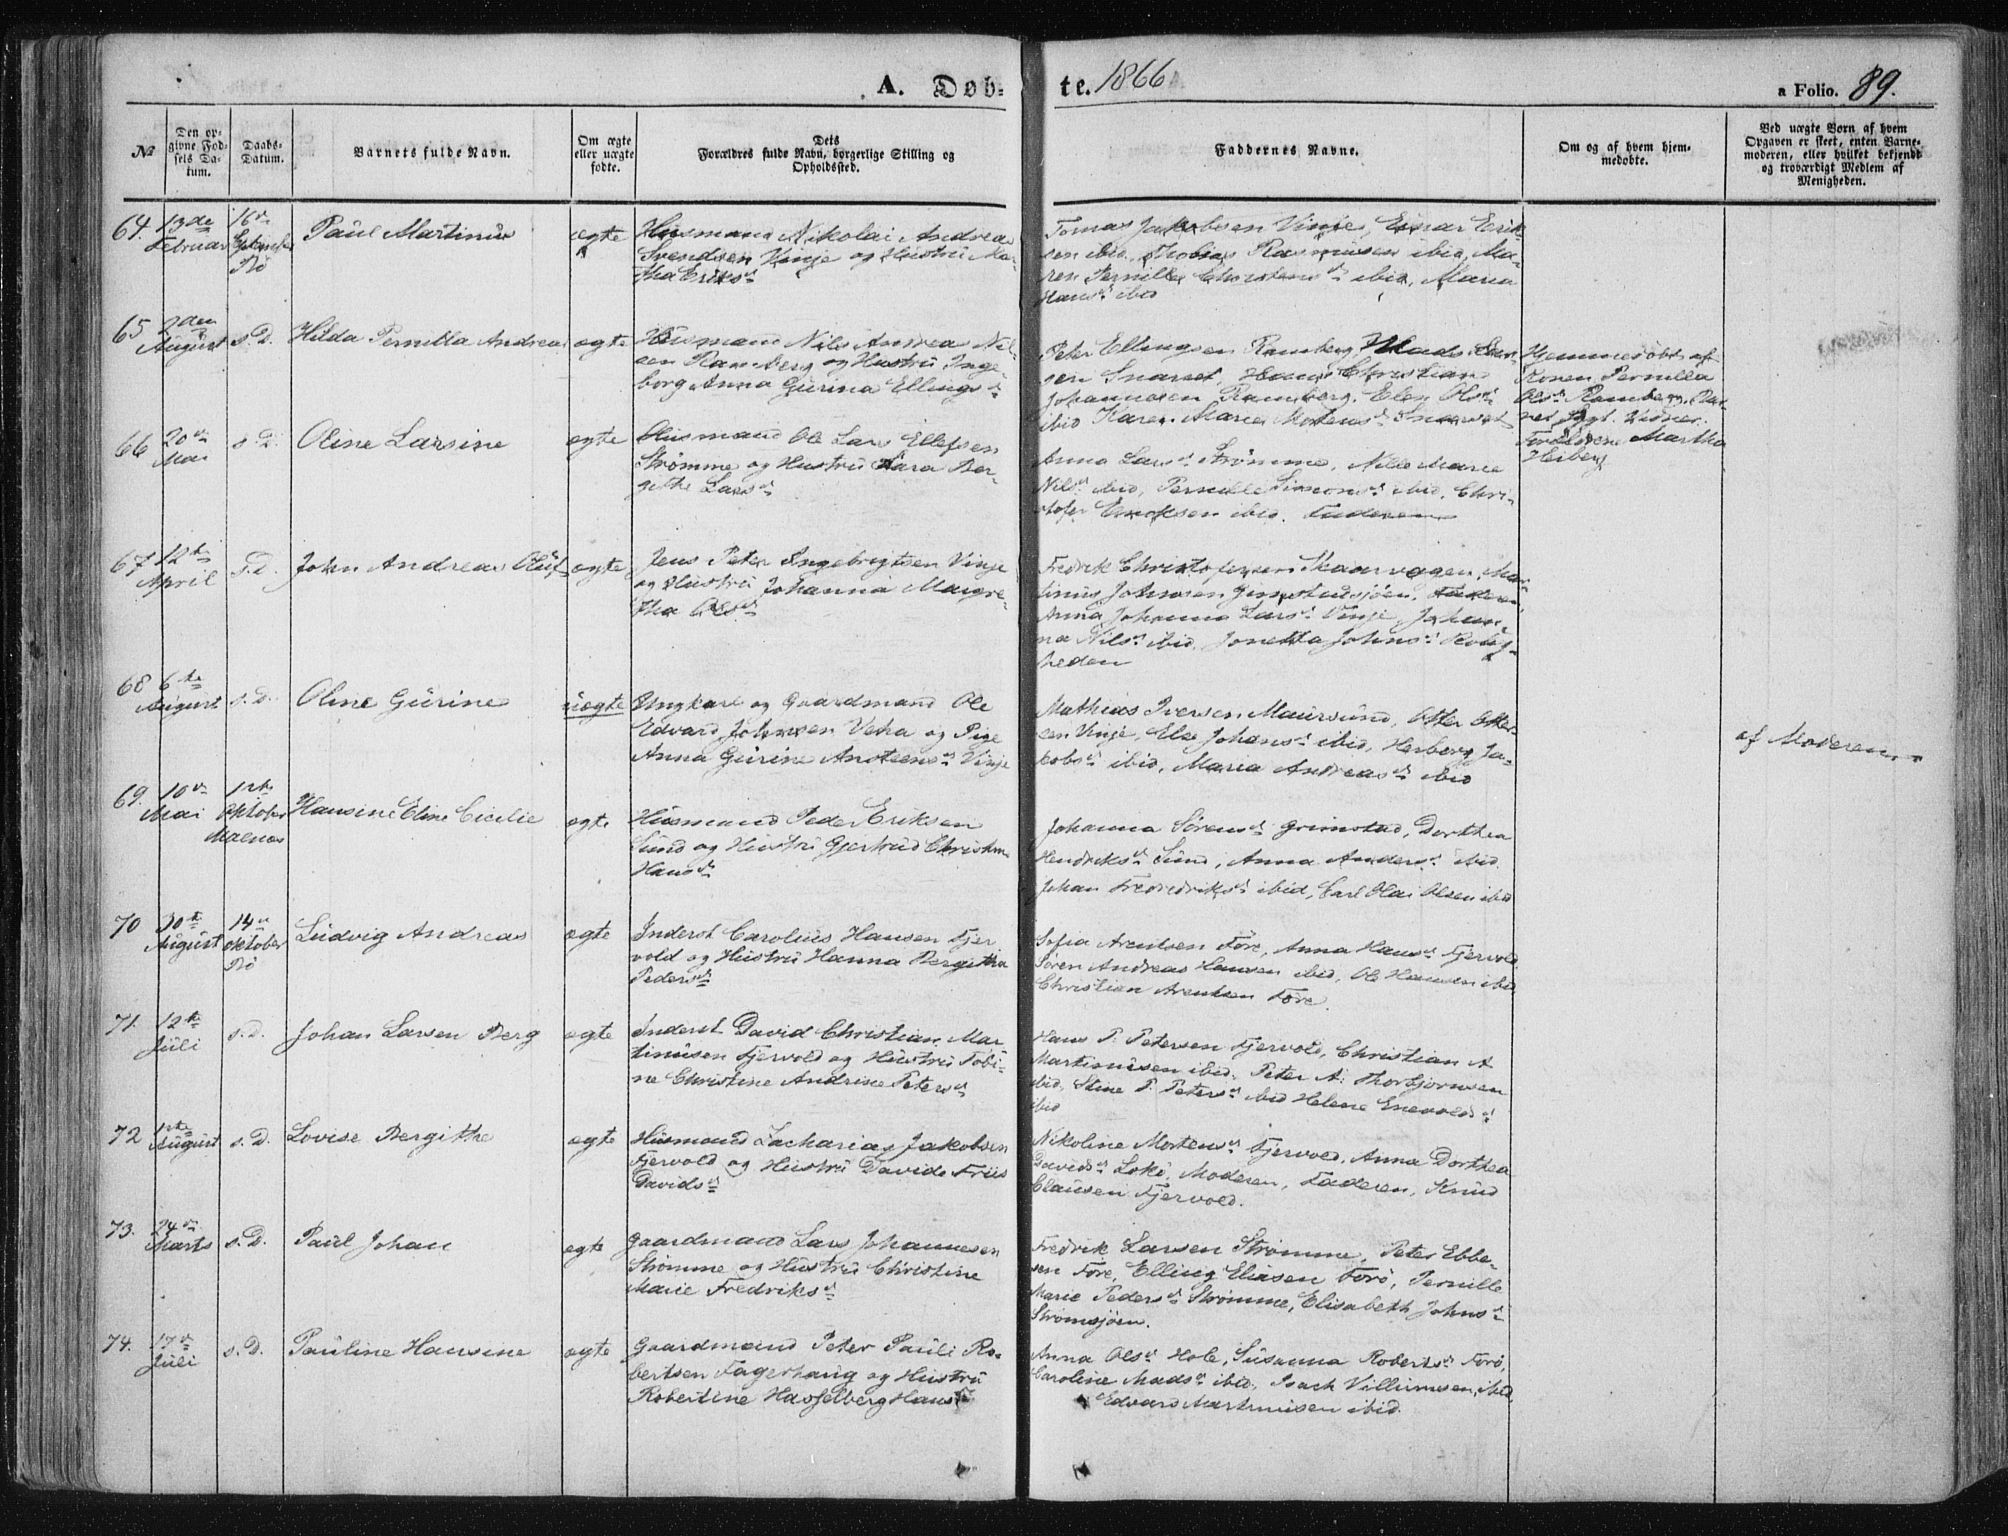 A. Døb-
te. 1866
a Folio. 89.
№
Den op-
givne Fød-
sels Da-
tum.
Daabs-
Datum.
Barnets fulde Navn.
Om ægte
eller uægte
fødte.
Dets
Forældres fulde Navn, borgerlige Stilling og
Opholdssted.
Faddernes Navne.
Om og af hvem hjem-
medøbte.
Ved uægte Børn af hvem
Opgaven er skeet, enten Barne-
moderen, eller hvilket bekjendt
og troværdigt Medlem af
Menigheden.
64.
13de
Februar
16de
Septembr
Bø
Paul Martinus
ægte
Husmand Nikolai Andreas
Svendsen Vinje og Hustru Mar-
tha Eriksd
Tomas Jakobsen Vinje, Einar Erik-
sen ibid, Thobias Rasmusen ibid, Ma-
ren Pernille Thorstensd ibid, Maria
Hansd ibid
65
2den
August
s.D.
Hilda Pernilla Andrea
ægte
Husmand Nils Andreas Nil-
sen Ramberg og Hustru Inge-
borg Anna Gurina Ellingsd
Peter Ellingsen Ramberg, Mads Lar-
sen Snarset Hans Christian
Johannesen Ramberg, Elen Olsd
ibid Karen Marie Mortensd Snarset
Hjemmedøbt af
Konen Pernilla
Olsd Ramberg. Bar-
net sygt. Vidner:
Forældrene Martha
Heiberg
66
20de
Mai
s.D.
Oline Larsine
ægte
Husmand Ole Lars Ellefsen
Strømme og Hustru Sara Ber-
githe Larsd
Anna Larsd Strømme, Nille Marie
Nilsd ibid, Pernille Simonsd ibid, Chri-
stofer Eriksen ibid. Faderen
67
12te
April
s.D.
John Andreas Oluf
ægte
Jens Peter Ingebrigtsen Vinje
og Hustru Johanna Margre-
tha Olsd
Fredrik Christofersen Skaarvagen, Mar-
tinus Johnsen Grimstadsjøen, Faderen
Anna Johanna Larsd Vinje, Johan-
na Nilsd ibid, Jonetta Johnsd
heden
68
6te
August
s.D.
Oline Gurine
uægte
Ungkarl og Gaardmand Ole
Edvard Johnsen Veha og Pige
Anna Gurine Ansteensd Vinje
Mathias Iversen Maursund, Otter Otter-
sen Vinje, Else Johansd ibid, Herborg Ja-
kobsd ibid, Maria Andreasd ibid
af Moderen
69.
10de
Mai
1ste
Oktober
Malnes
Hansine Eline Cicilie
ægte
Husmand Peder Eriksen
Sund og Hustru Gjertrud Christine
Hansd
Johanna Sørensd Grimstad, Dorthea
Hendriksd Sund, Anna Andersd ibid
Johan Fredriks ibid, Carl Olai Olsen ibid
70
30te
August
14de
Oktober
Bø
Ludvig Andreas
ægte
Inderst Carolius Hansen Fjer
vold og Hustru Hanna Bergitha
Pedersd
Sofia Arentsen Føre, Anna Hansd Fjervold
Søren Andreas Hansen ibid, Ole Hansen ibid
Christian Arentsen Føre
71.
12te
Juli
s.D.
Johan Larsen Berg
ægte
Inderst David Christian Mar-
tinusen Fjervold og Hustru Tobi-
ne Christine Andrine Petersd
Hans P. Petersen Fjervold, Christian A
Martinusen ibid, Peter A. Thorbjørnsen
ibid, Stine P. Petersd ibid Helene Enevoldsd
ibid
72
1ste
August
s.D.
Lovise Bergithe
ægte
Husmand Zacharias Jakobsen
Fjervold og Hustru Davide Friis
Davidsd
Nikoline Mortensd Fjervold, Anna Dorthea
Davidsd Lokø, Moderen, Faderen, Knud
Clausen Fjervold.
73.
24de
Marts
s.D.
Paul Johan
ægte
Gaardmand Lars Johannesen
Strømme og Hustru Christine
Marie Fredriksd
Fredrik Larsen Strømme, Peter Ebbe-
sen Føre, Elling Eliasen Førø, Pernille
Marie Pedersd Strømme, Elisabeth Johnsd
Strømsjøen.
74.
17de
Juli
s.D.
Pauline Hansine
ægte
Gaardmand Peter Pauli Ro-
bertsen Fagerhaug og Hustru
Robertine Hasselberg Hansd
Anna Olsd Hole, Susanna Robertsd Førø,
Caroline Madsd ibid, Isach Villumsen ibid,
Edvard Martinusen ibid.